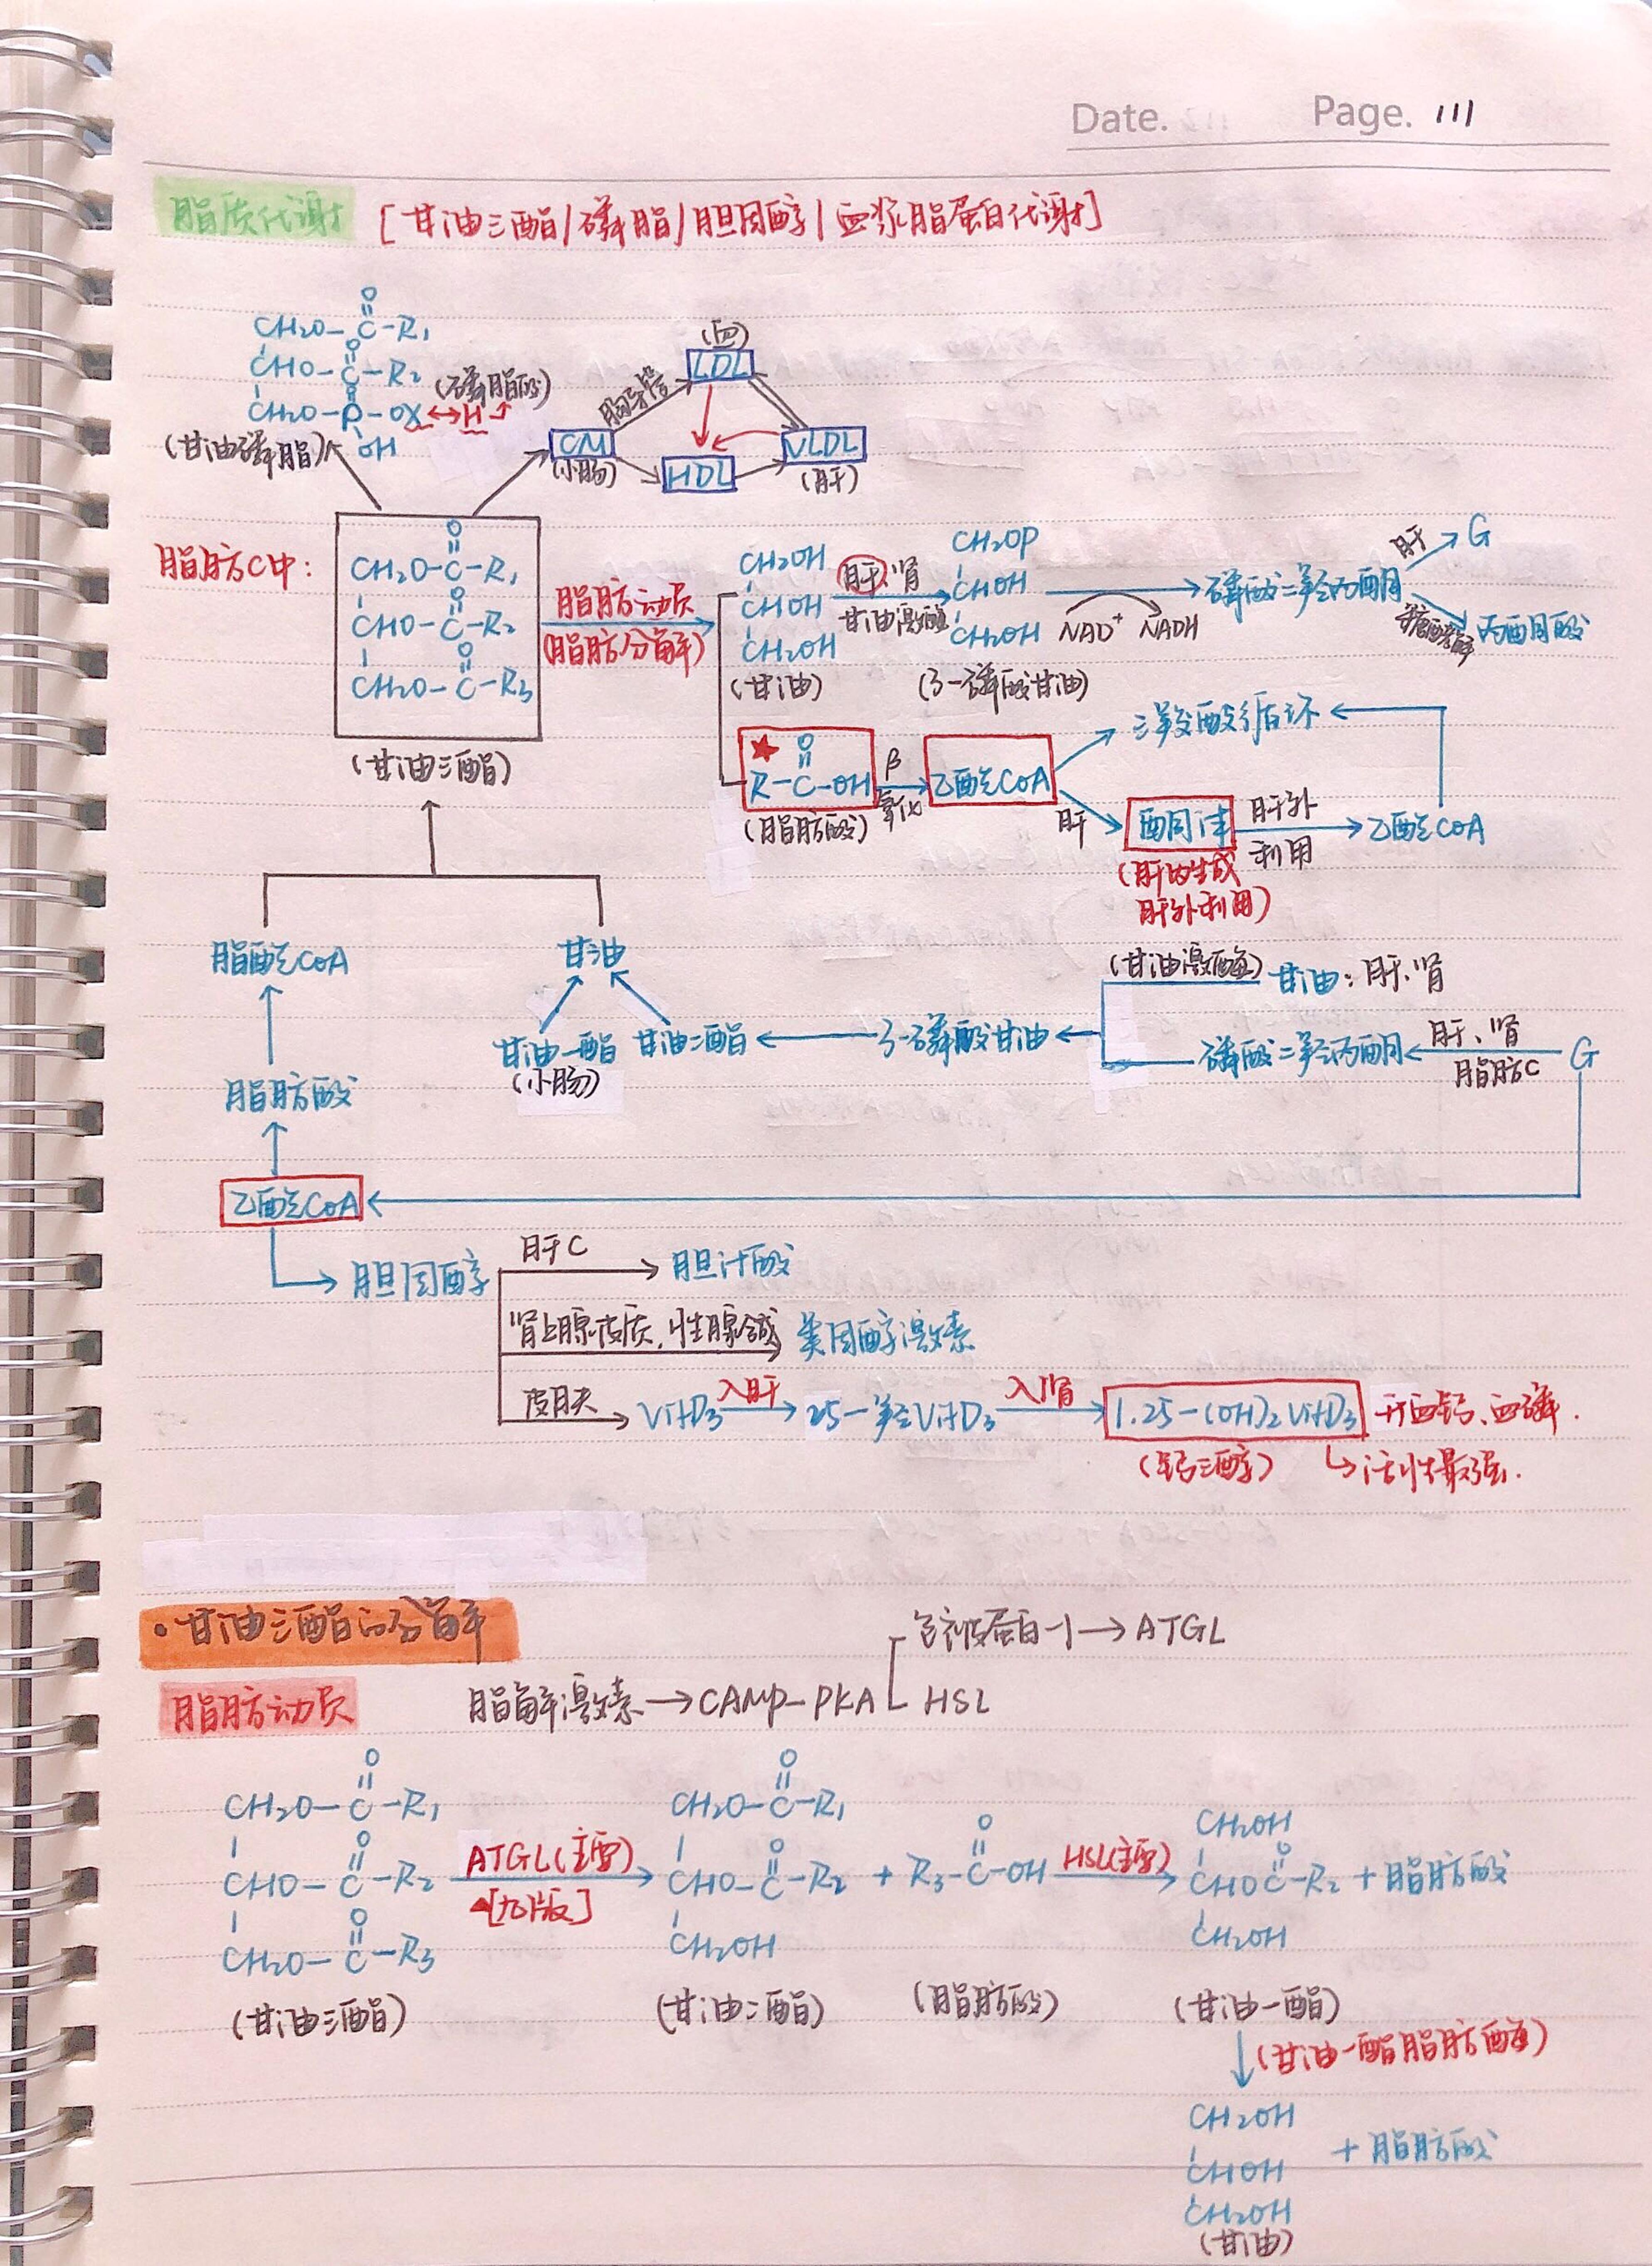 Date. Page. 111
脂质代谢 [甘油三酯/磷脂/胆固醇/血浆脂蛋白代谢]
O
CH₂O-C-R₁
O
CHO-C-R₂
O
CH₂O-P-OX↔H (磷脂酸)
OH
(甘油磷脂)
(血)
LDL
胸导管
CM
(小肠)
HDL
VLDL
(肝)
脂肪C中:
O
CH₂O-C-R₁
O
CHO-C-R₂
O
CH₂O-C-R₃
(甘油三酯)
脂肪动员
(脂肪分解)
CH₂OH
CHOH
CH₂OH
(甘油)
肝.肾
甘油激酶
CH₂OP
CHOH
CH₂OH
(3-磷酸甘油)
NAD⁺ NADH
磷酸二羟丙酮
肝 G
糖酵解 丙酮酸
★ O
R-C-OH
(脂肪酸)
β
氧化
乙酰CoA
三羧酸循环
肝
酮体
(肝内生成
肝外利用)
肝外
利用
乙酰CoA
脂酰CoA 甘油
(甘油激酶) 甘油:肝.肾
甘油一酯 甘油二酯 ← 3-磷酸甘油 ← 磷酸二羟丙酮 ← 肝、肾 G
(小肠) 脂肪C
脂肪酸
乙酰CoA
胆固醇
肝C → 胆汁酸
肾上腺皮质,性腺等碱 类固醇激素
皮肤 → VitD₃ 入肝 → 25-羟VitD₃ 入肾 → 1.25-(OH)₂VitD₃ 升血钙、血磷.
(钙三醇) ↳活性最强.
·甘油三酯的分解
包被蛋白-1→ATGL
脂肪动员 脂解激素→CAMP-PKA HSL
O
CH₂O-C-R₁
O
CHO-C-R₂
O
CH₂O-C-R₃
(甘油三酯)
ATGL(主要)
[九版]
O
CH₂O-C-R₁
O
CHO-C-R₂
CH₂OH
(甘油二酯)
+
O
R₃-C-OH
(脂肪酸)
HSL(主要)
CH₂OH
O
CHOC-R₂ + 脂肪酸
CH₂OH
(甘油一酯)
↓(甘油一酯脂肪酶)
CH₂OH
CHOH + 脂肪酸
CH₂OH
(甘油)